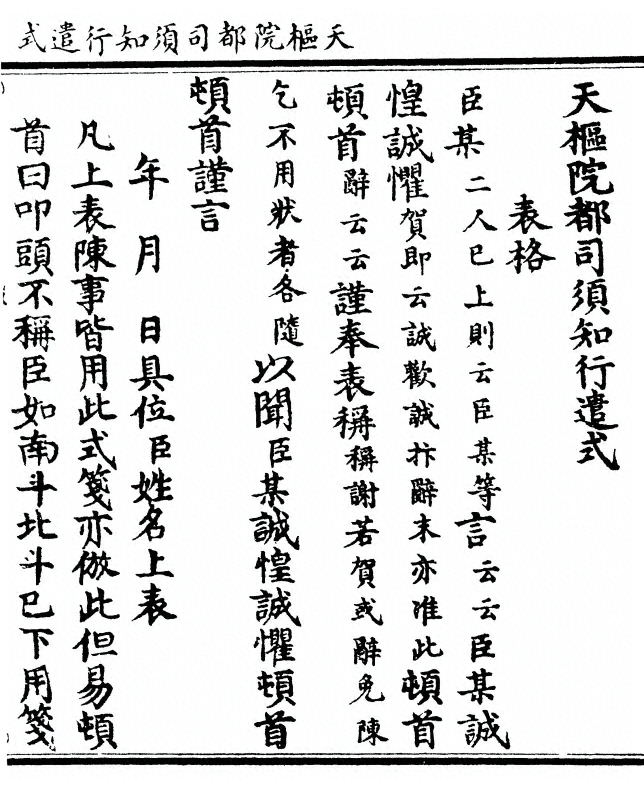 天樞院都司須知行遣式
天樞院都司須知行遣式
表格
臣某二人已上則云臣某等言云云臣某誠
惶誠懼賀即云誠歡誠抃辭末亦准此頓首
頓首辭云云謹奉表稱稱謝若賀或辭免陳
乞不用狀者各隨以聞臣某誠惶誠懼頓首
頓首謹言
年月日具位臣姓名上表
凡上表陳事皆用此式箋亦倣此但易頓
首曰叩頭不稱臣如南斗北斗已下用箋